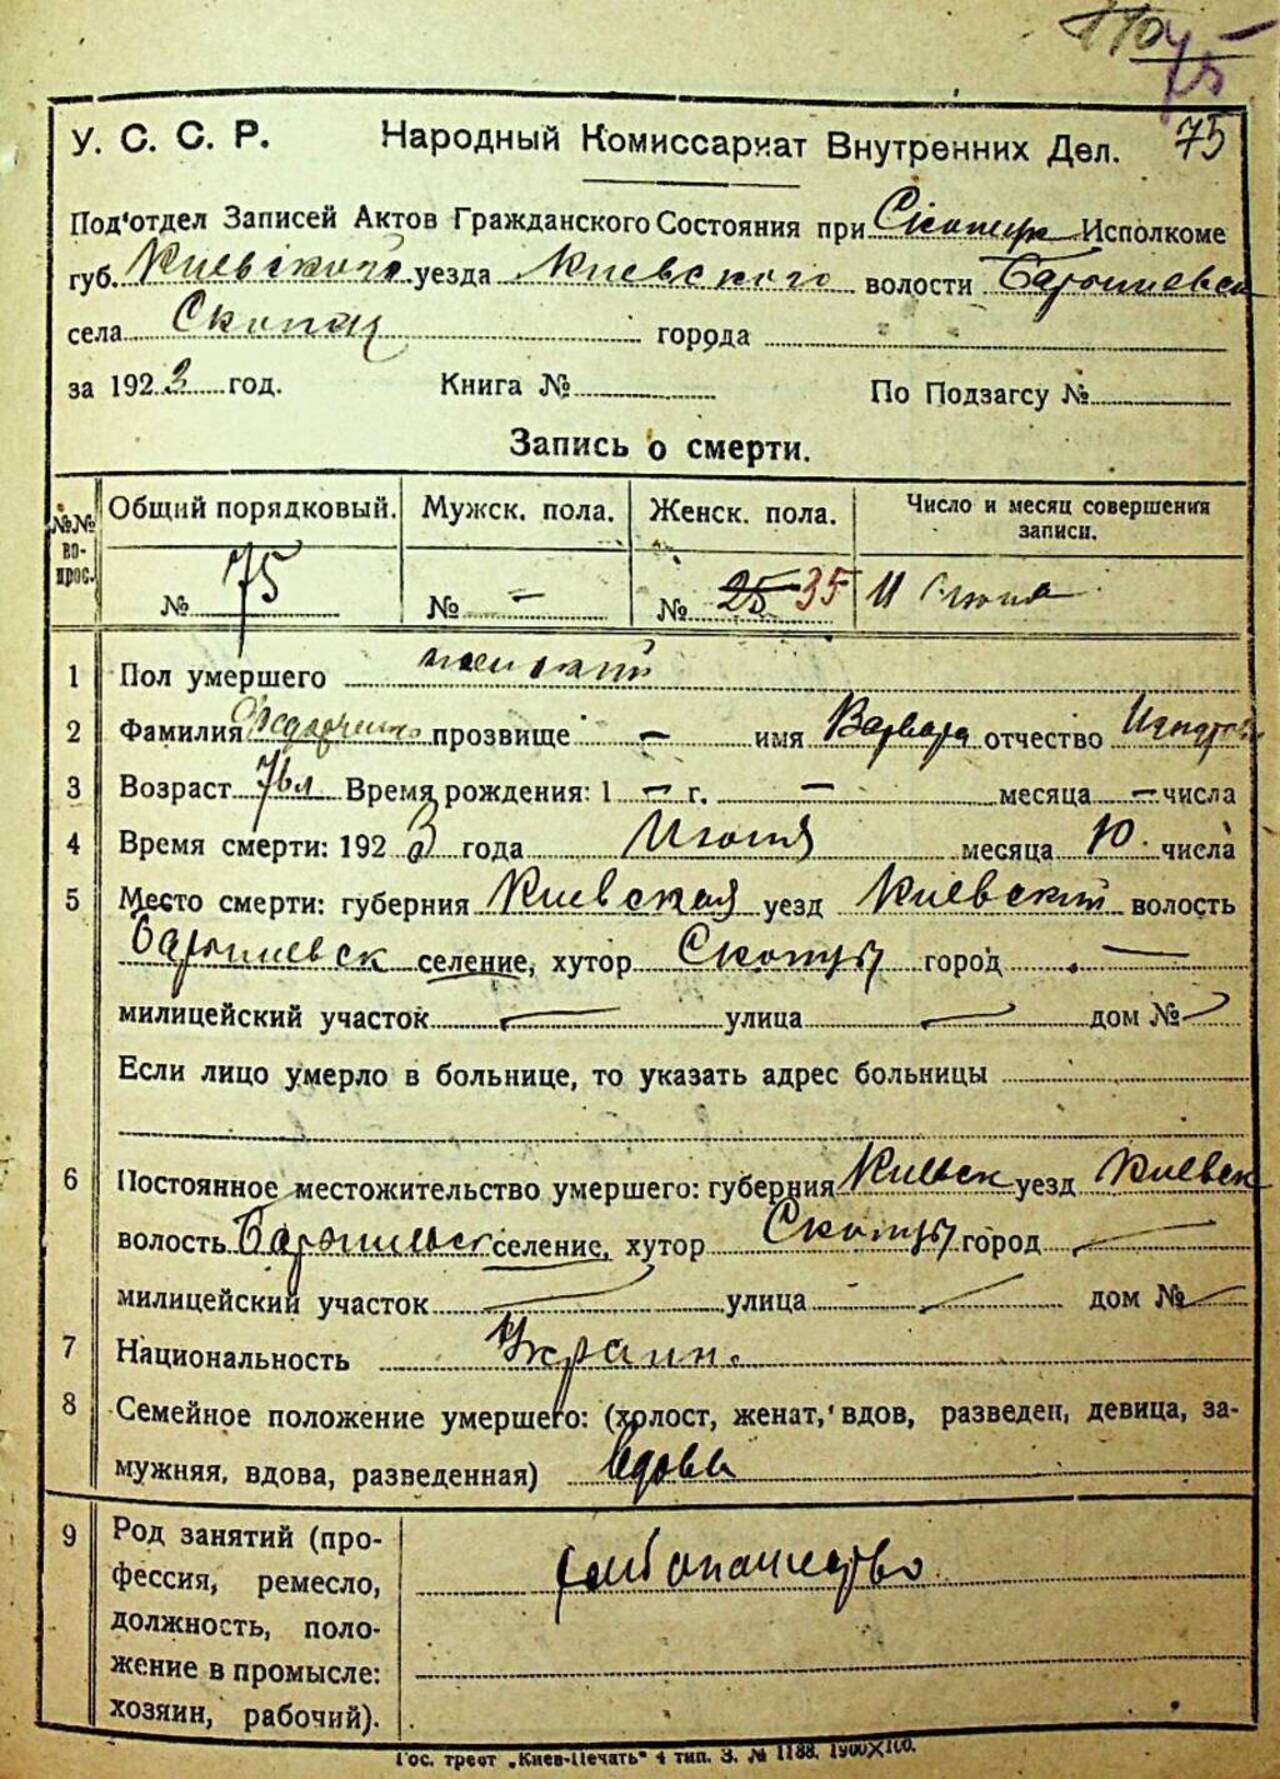 75
У. С. С. Р. Народный Комиссариат Внутренних Дел. 75
Под'отдел Записей Актов Гражданского Состояния при Исполкоме
губ. Киевского уезда Киевского волости
села Скопцы города
за 1922 год. Книга № По Подзагсу №
Запись о смерти.
№№ вопрос. Общий порядковый. Мужск. пола. Женск. пола. Число и месяц совершения записи.
№ 75 № – № 25 35 11
1 Пол умершего женский
2 Фамилия прозвище – имя Варвара отчество
3 Возраст 76 л Время рождения: 1 – г. – месяца – числа
4 Время смерти: 192 года месяца 10 числа
5 Место смерти: губерния Киевская уезд Киевский волость
селение, хутор Скопцы город –
милицейский участок – улица – дом №
Если лицо умерло в больнице, то указать адрес больницы
6 Постоянное местожительство умершего: губерния Киевск уезд Киевск
волость селение, хутор Скопцы город –
милицейский участок – улица – дом № –
7 Национальность Украин.
8 Семейное положение умершего: (холост, женат, вдов, разведен, девица, за-
мужняя, вдова, разведенная) Вдова
9 Род занятий (про-
фессия, ремесло,
должность, поло-
жение в промысле:
хозяин, рабочий).
Гос. трест „Киев-Печать" 4 тип. З. № 1188. 1900X100.